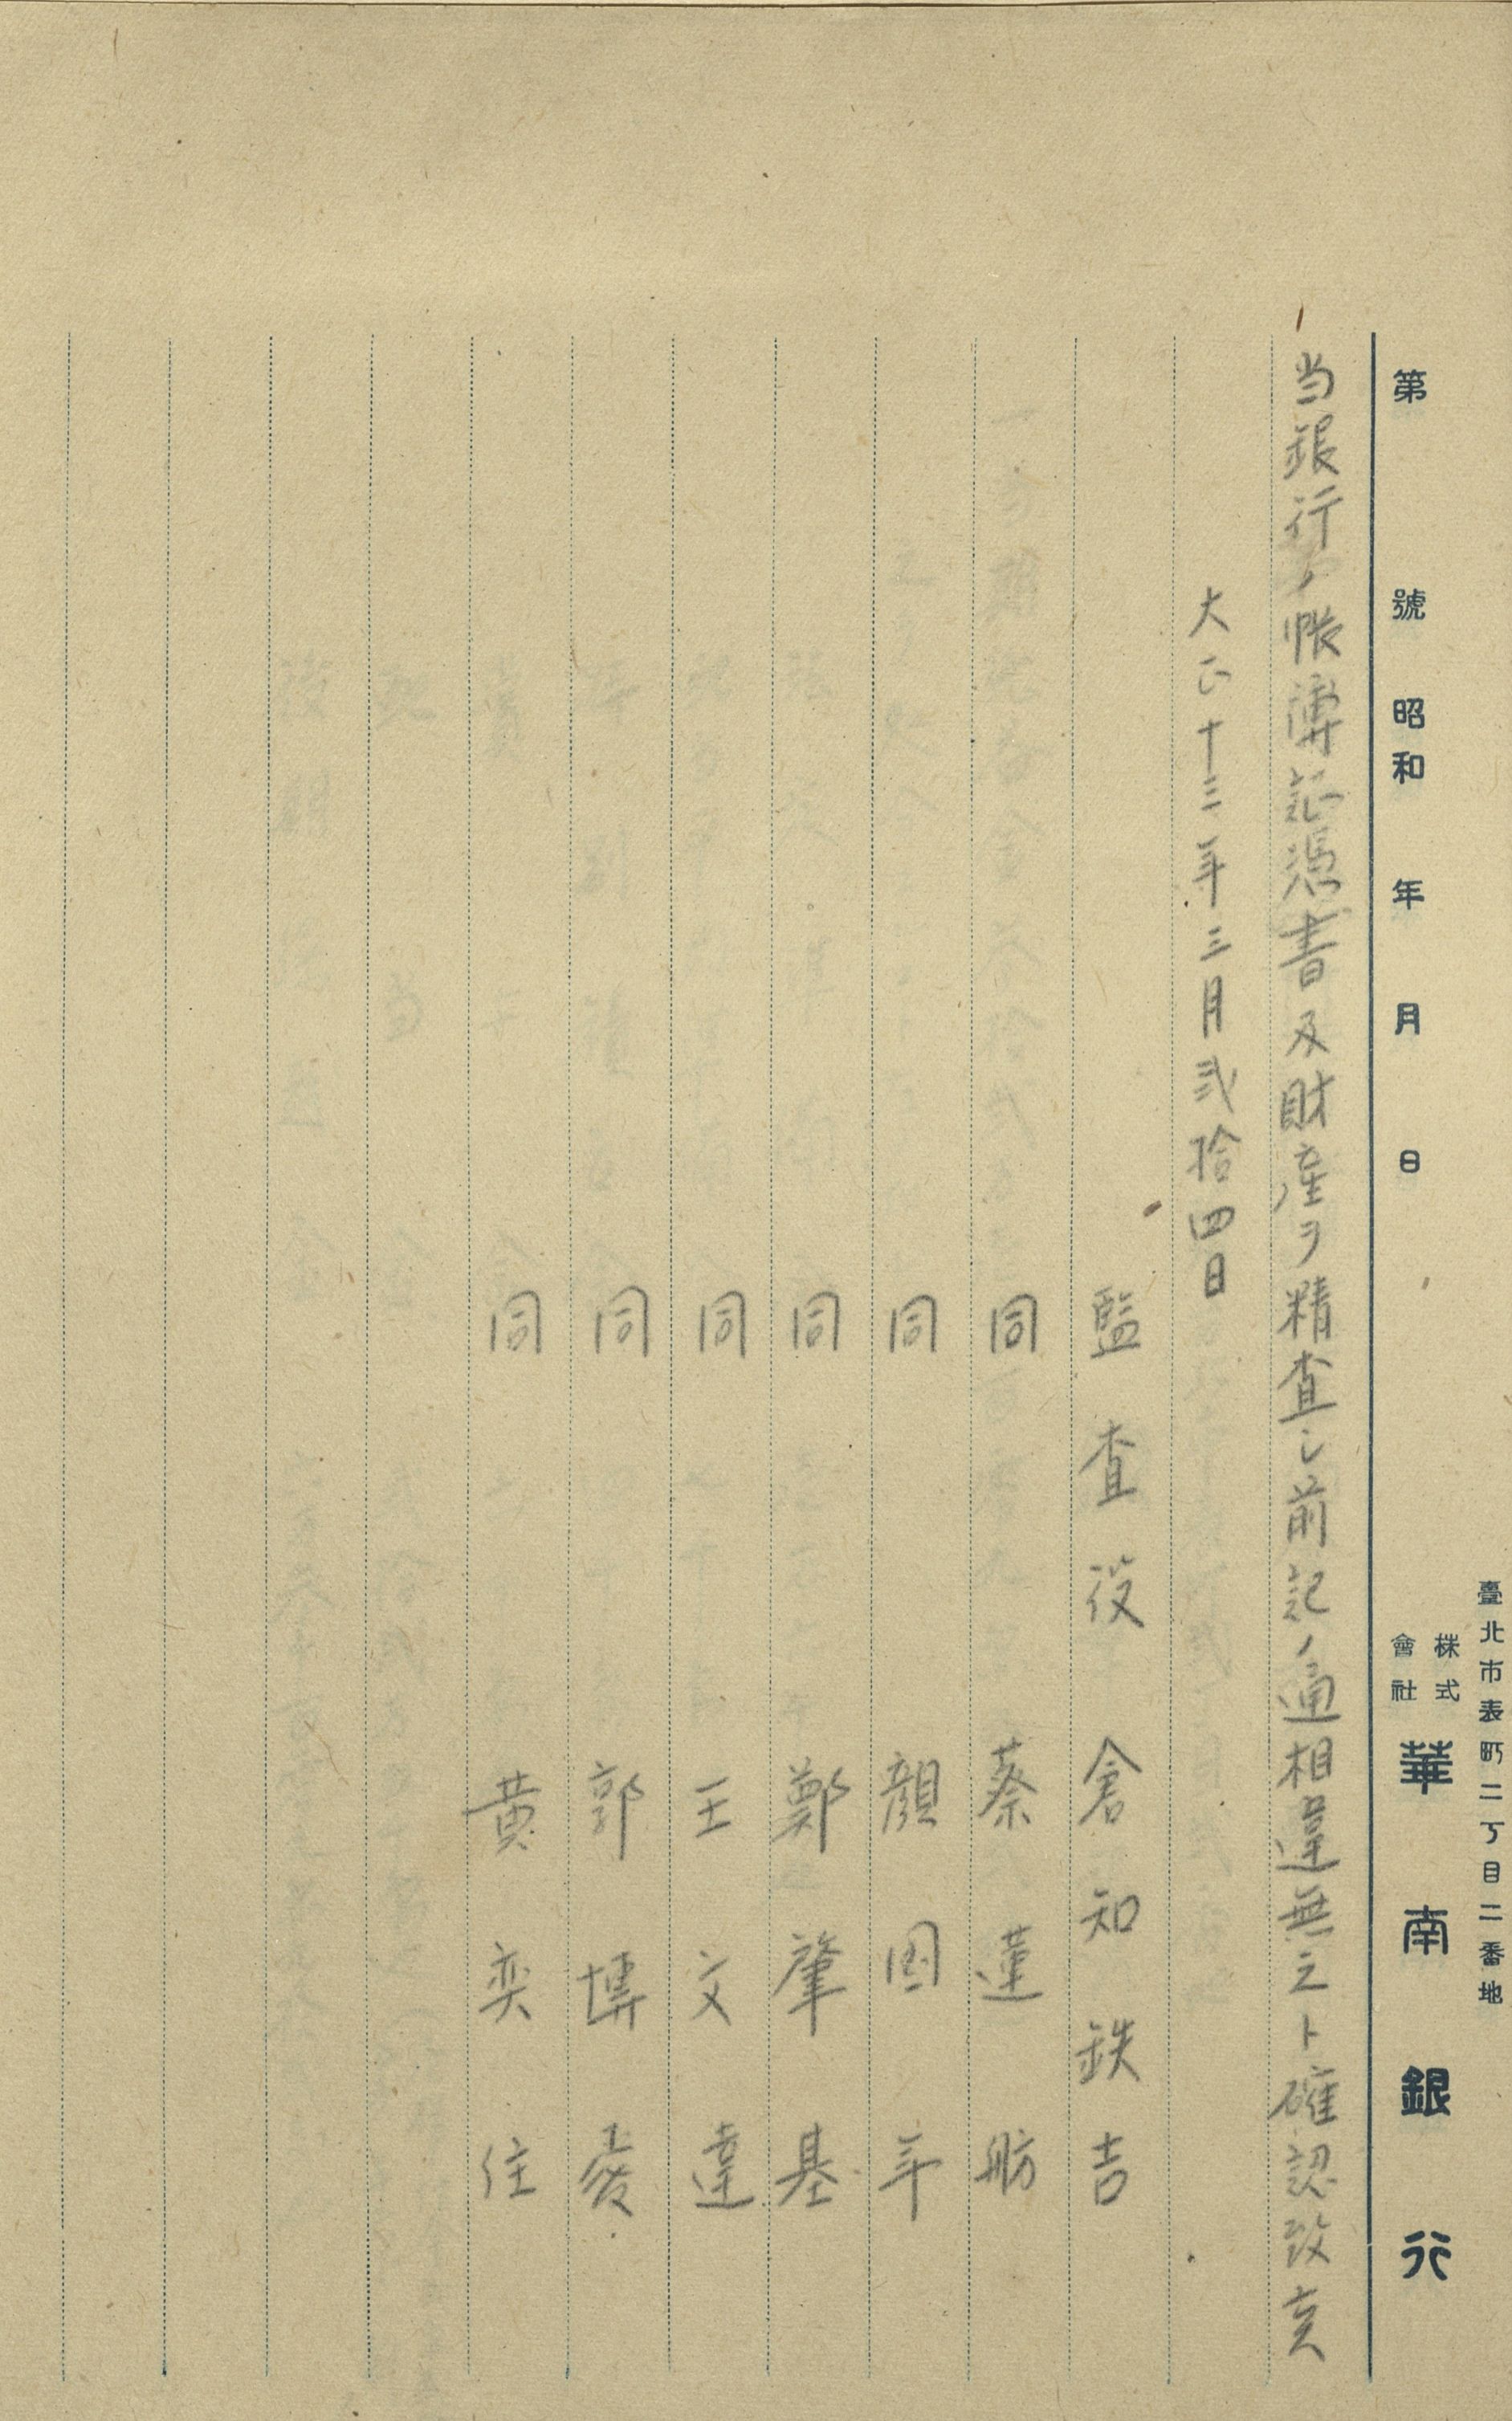 臺北市表町二丁目二番地
株式會社 華南銀行
第 號 昭和 年 月 日
当銀行ノ帳簿証憑書及財産ヲ精査シ前記ノ通相違無之ト確認致亥
大正十三年三月弐拾四日
監査役 倉知鉄吉
同 蔡蓮舫
同 顔国年
同 鄭肇基
同 王文達
同 郭博
同 黄奕住